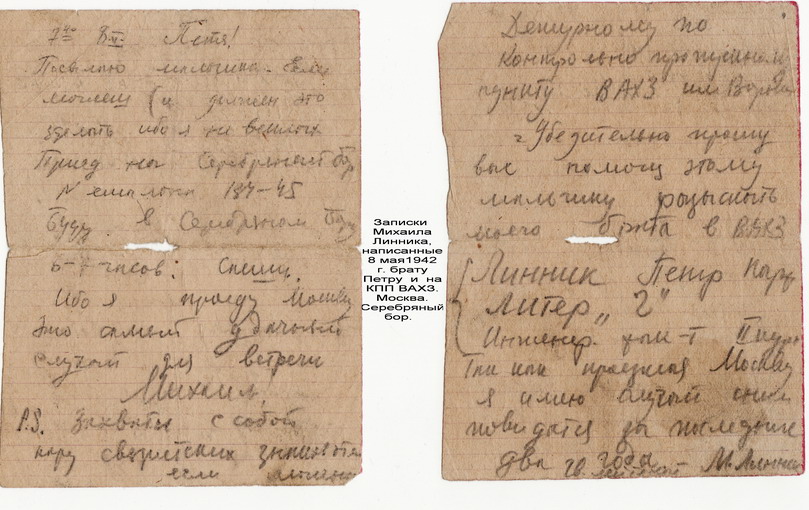 8 Петя!
Посылаю мальчика.
можешь (и должен это
зделать ибо я не
Приед на Серебряный Бор
N ешалона 184-45
Буду в Серебряном Бору
6-7 часов: Спеши.
Ибо я проеду Москву
Это самый удачный
случай для встречи
Михаил.
P.S. Захвати с собой
пару
если
Записки
Михаила
Линника,
написанные
8 мая1942
г. брату
Петру и на
КПП ВАХЗ.
Москва.
Серебряный
бор.
Дежурному по
Контрольно пропускном
пункту ВАХЗ им
Убедительно прошу
вас помочь этому
мальчику розыскать
моего брата в ВАХЗ
Линник Петр
Литер „2"
Инженер. хим-т II курс
Так как проезжая Москву
я имею случай
повидатся за последние
два года М. Линник